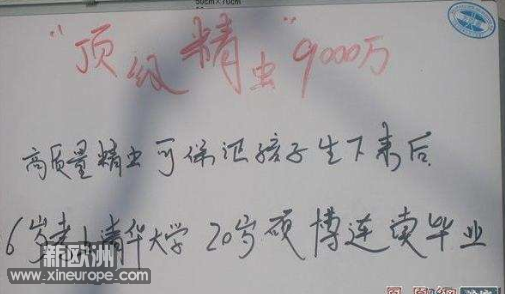 50cm×70cm
"顶级精虫"9000万
高质量精虫可保证孩子生下来后
6岁考上清华大学 20岁硕博连读毕业
新欧洲
www.xineurope.com